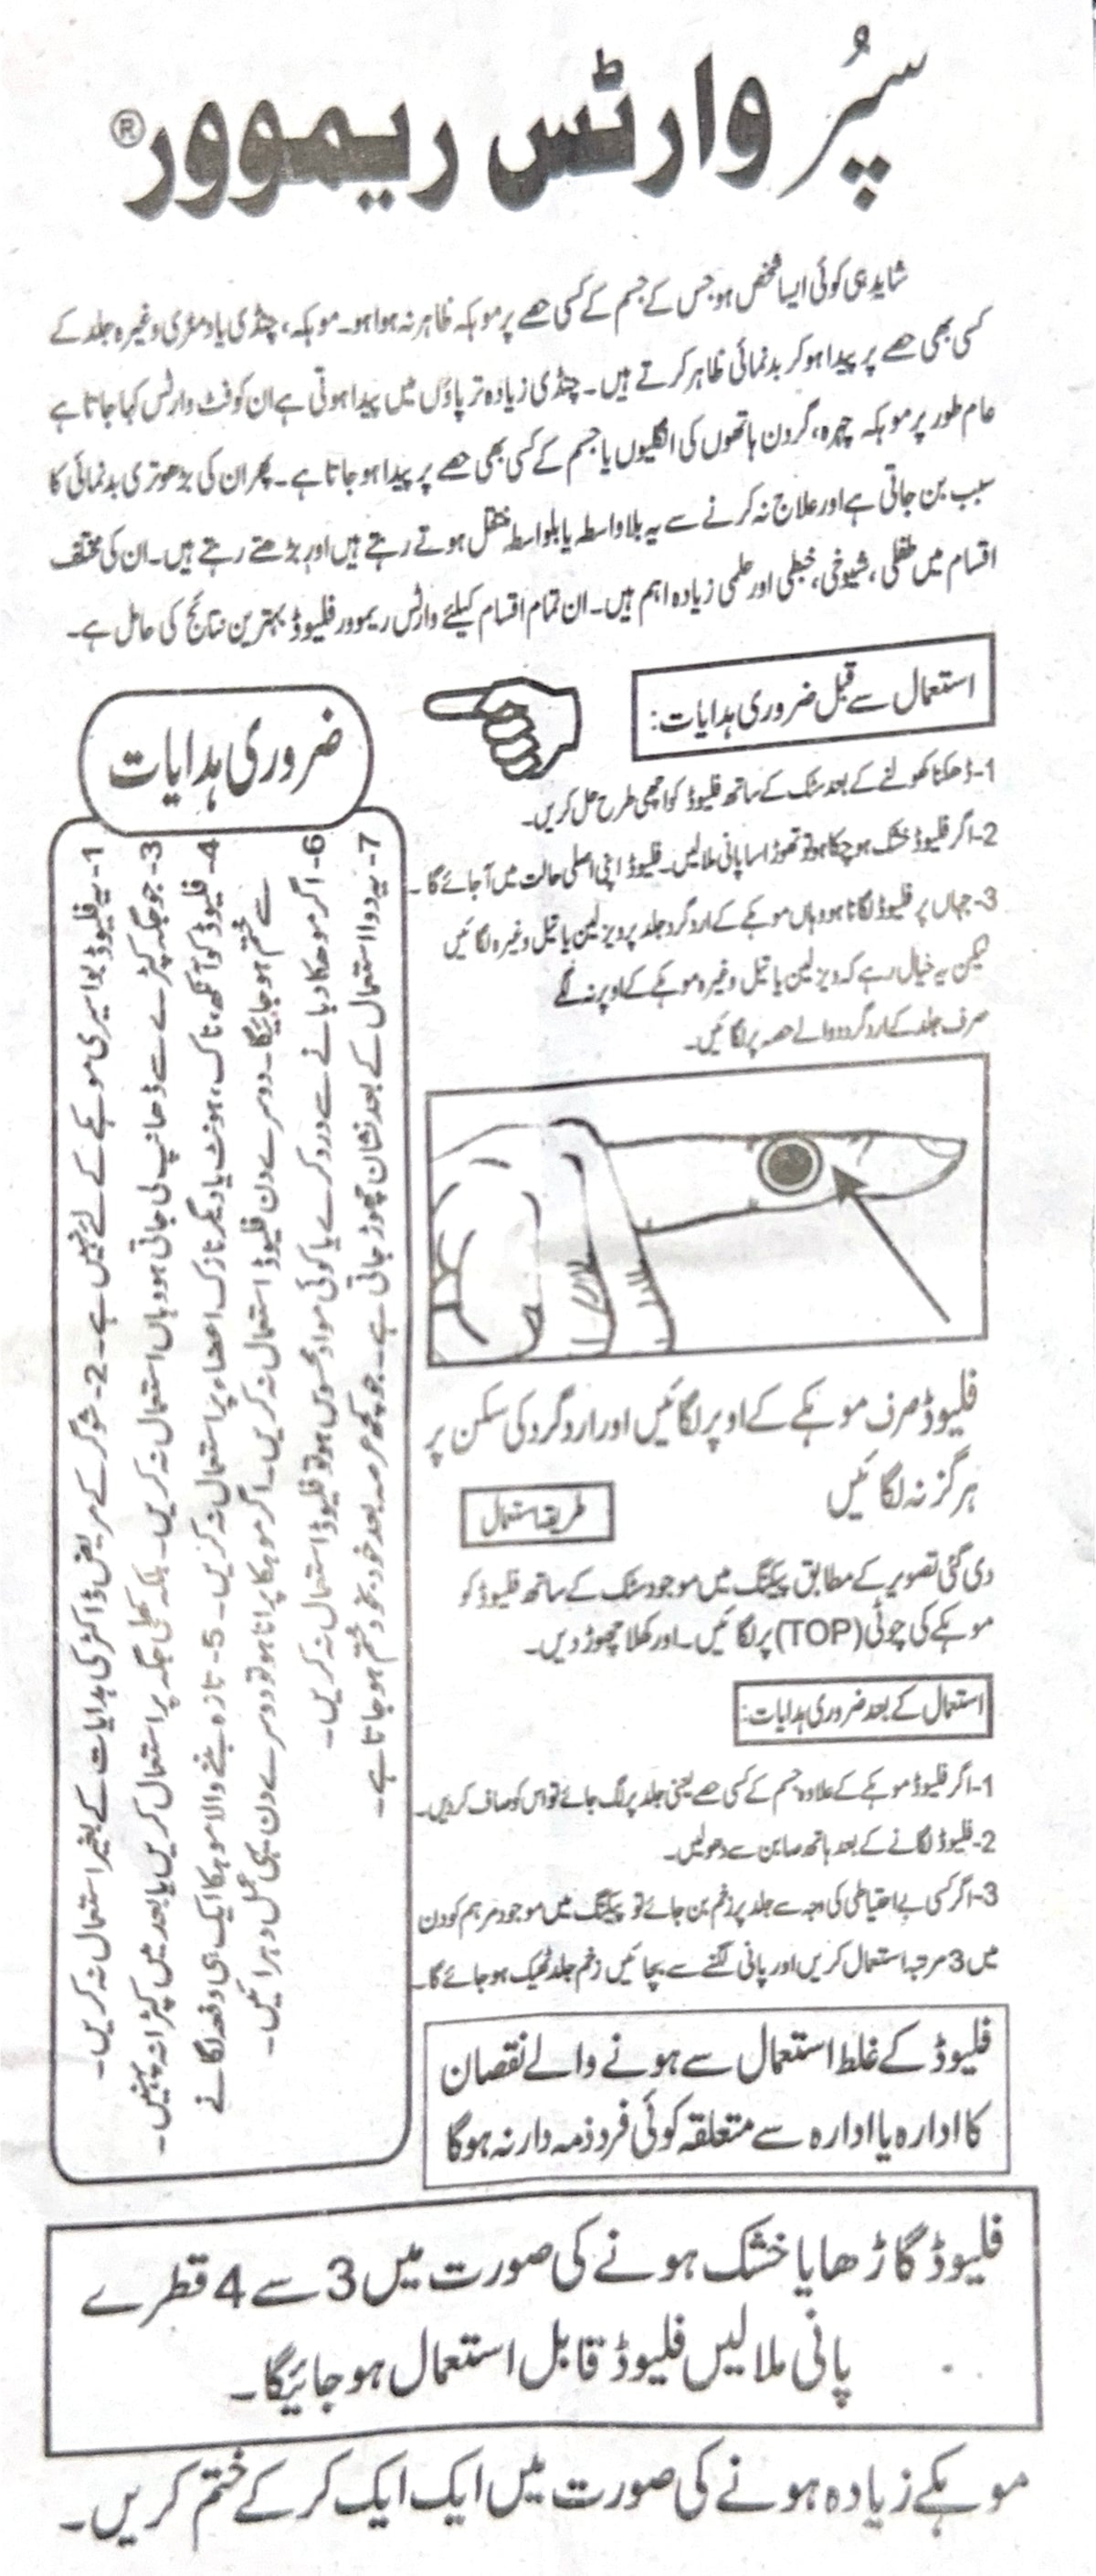 سپُر وارٹس ریموور®
شاید ہی کوئی ایسا شخص ہو جس کے جسم کے کسی حصے پر موہکہ ظاہر نہ ہوا ہو۔ موہکہ، چنڈی یا دمڑی وغیرہ جلد کے
کسی بھی حصے پر پیدا ہو کر بدنمائی ظاہر کرتے ہیں۔ چنڈی زیادہ تر پاؤں میں پیدا ہوتی ہے ان کو فٹ وارٹس کہا جاتا ہے
عام طور پر موہکہ چہرہ، گردن ہاتھوں کی انگلیوں یا جسم کے کسی بھی حصے پر پیدا ہو جاتا ہے۔ پھر ان کی بڑھوتری بدنمائی کا
سبب بن جاتی ہے اور علاج نہ کرنے سے یہ بلاواسطہ یا بلواسطہ منتقل ہوتے رہتے ہیں اور بڑھتے رہتے ہیں۔ ان کی مختلف
اقسام میں طفلی، شیوخی، خبطی اور حلمی زیادہ اہم ہیں۔ ان تمام اقسام کیلئے وارٹس ریموور فلیوڈ بہترین نتائج کی حامل ہے۔
استعمال سے قبل ضروری ہدایات:
1-ڈھکنا کھولنے کے بعد سٹک کے ساتھ فلیوڈ کو اچھی طرح حل کریں۔
2-اگر فلیوڈ خشک ہو چکا ہو تو تھوڑا سا پانی ملا لیں۔ فلیوڈ اپنی اصلی حالت میں آ جائے گا۔
3-جہاں پر فلیوڈ لگانا ہو وہاں موہکے کے اردگرد جلد پر ویزلین یا تیل وغیرہ لگائیں
لیکن یہ خیال رہے کہ ویزلین یا تیل وغیرہ موہکے کے اوپر نہ لگے
صرف جلد کے اردگرد والے حصہ پر لگائیں۔
فلیوڈ صرف موہکے کے اوپر لگائیں اور اردگرد کی سکن پر
ہرگز نہ لگائیں
طریقہ استعمال
دی گئی تصویر کے مطابق پیکنگ میں موجود سٹک کے ساتھ فلیوڈ کو
موہکے کی چوٹی (TOP) پر لگائیں۔ اور کھلا چھوڑ دیں۔
استعمال کے بعد ضروری ہدایات:
1-اگر فلیوڈ موہکے کے علاوہ جسم کے کسی حصے یعنی جلد پر لگ جائے تو اس کو صاف کر دیں۔
2-فلیوڈ لگانے کے بعد ہاتھ صابن سے دھو لیں۔
3-اگر کسی بے احتیاطی کی وجہ سے جلد پر زخم بن جائے تو پیکنگ میں موجود مرہم کو دن
میں 3 مرتبہ استعمال کریں اور پانی لگنے سے بچائیں زخم جلد ٹھیک ہو جائے گا۔
فلیوڈ کے غلط استعمال سے ہونے والے نقصان
کا ادارہ یا ادارہ سے متعلقہ کوئی فرد ذمہ دار نہ ہوگا
ضروری ہدایات
1-یہ فلیوڈ بواسیری موہکے کے لئے نہیں ہے۔ 2-شوگر کے مریض ڈاکٹر کی ہدایات کے بغیر استعمال نہ کریں۔
3-جو جگہ کپڑے سے ڈھانپ لی جاتی ہو وہاں استعمال نہ کریں۔ بلکہ کھلی جگہ پر استعمال کریں یا بعد میں کپڑا نہ پہنیں۔
4-فلیوڈ کو آنکھ، ناک، ہونٹ یا دیگر نازک اعضاء پر استعمال نہ کریں۔ 5-تازہ بننے والا موہکا ایک ہی دفعہ لگانے
سے ختم ہو جائیگا۔ دوسرے دن فلیوڈ استعمال نہ کریں۔ اگر موہکا پرانا ہو تو دوسرے دن یہی عمل دہرائیں۔
6-اگر موھکا دبانے سے درد کرے یا کوئی مواد محسوس ہو تو فلیوڈ استعمال نہ کریں۔
7-یہ دوا استعمال کے بعد نشان چھوڑ جاتی ہے۔ جو کچھ عرصہ بعد خود بخود ختم ہو جاتا ہے۔
فلیوڈ گاڑھا یا خشک ہونے کی صورت میں 3 سے 4 قطرے
پانی ملا لیں فلیوڈ قابل استعمال ہو جائیگا۔
موہکے زیادہ ہونے کی صورت میں ایک ایک کر کے ختم کریں۔